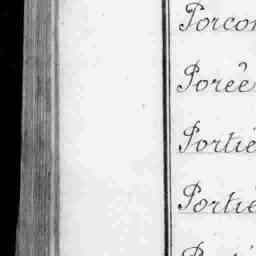 Porcon
Porée
Portiè
Portiè